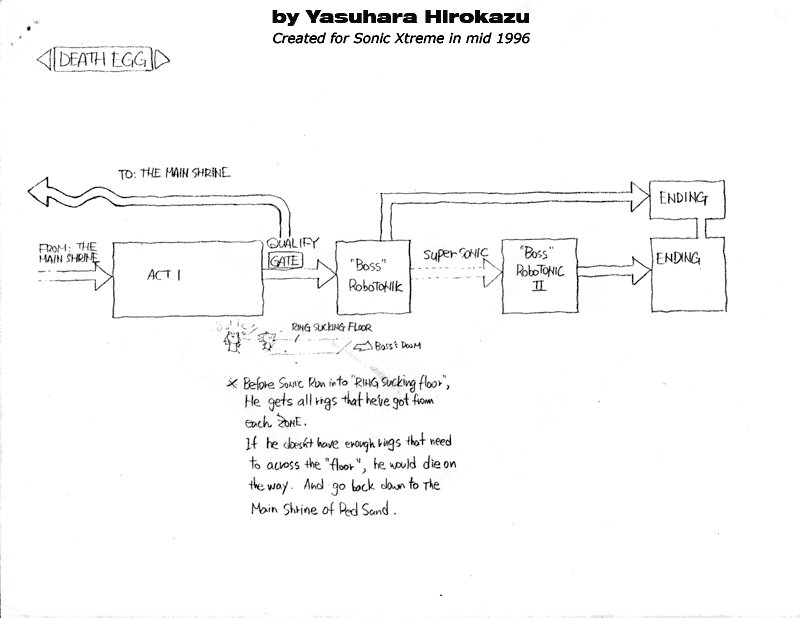 by Yasuhara Hirokazu
Created for Sonic Xtreme in mid 1996
DEATH EGG
TO: THE MAIN SHRINE
FROM: THE
MAIN SHRINE
ACT 1
QUALIFY
GATE
"BOSS"
ROBOTONIK
SUPER SONIC
"BOSS"
ROBOTONIC
II
ENDING
ENDING
RING SUCKING FLOOR
BOSS'S ROOM
× Before Sonic Run into "RING Sucking floor",
He gets all rings that he've got from
each ZONE.
If he doesn't have enough rings that need
to across the "floor", he would die on
the way. And go back down to The
Main Shrine of Red Sand.